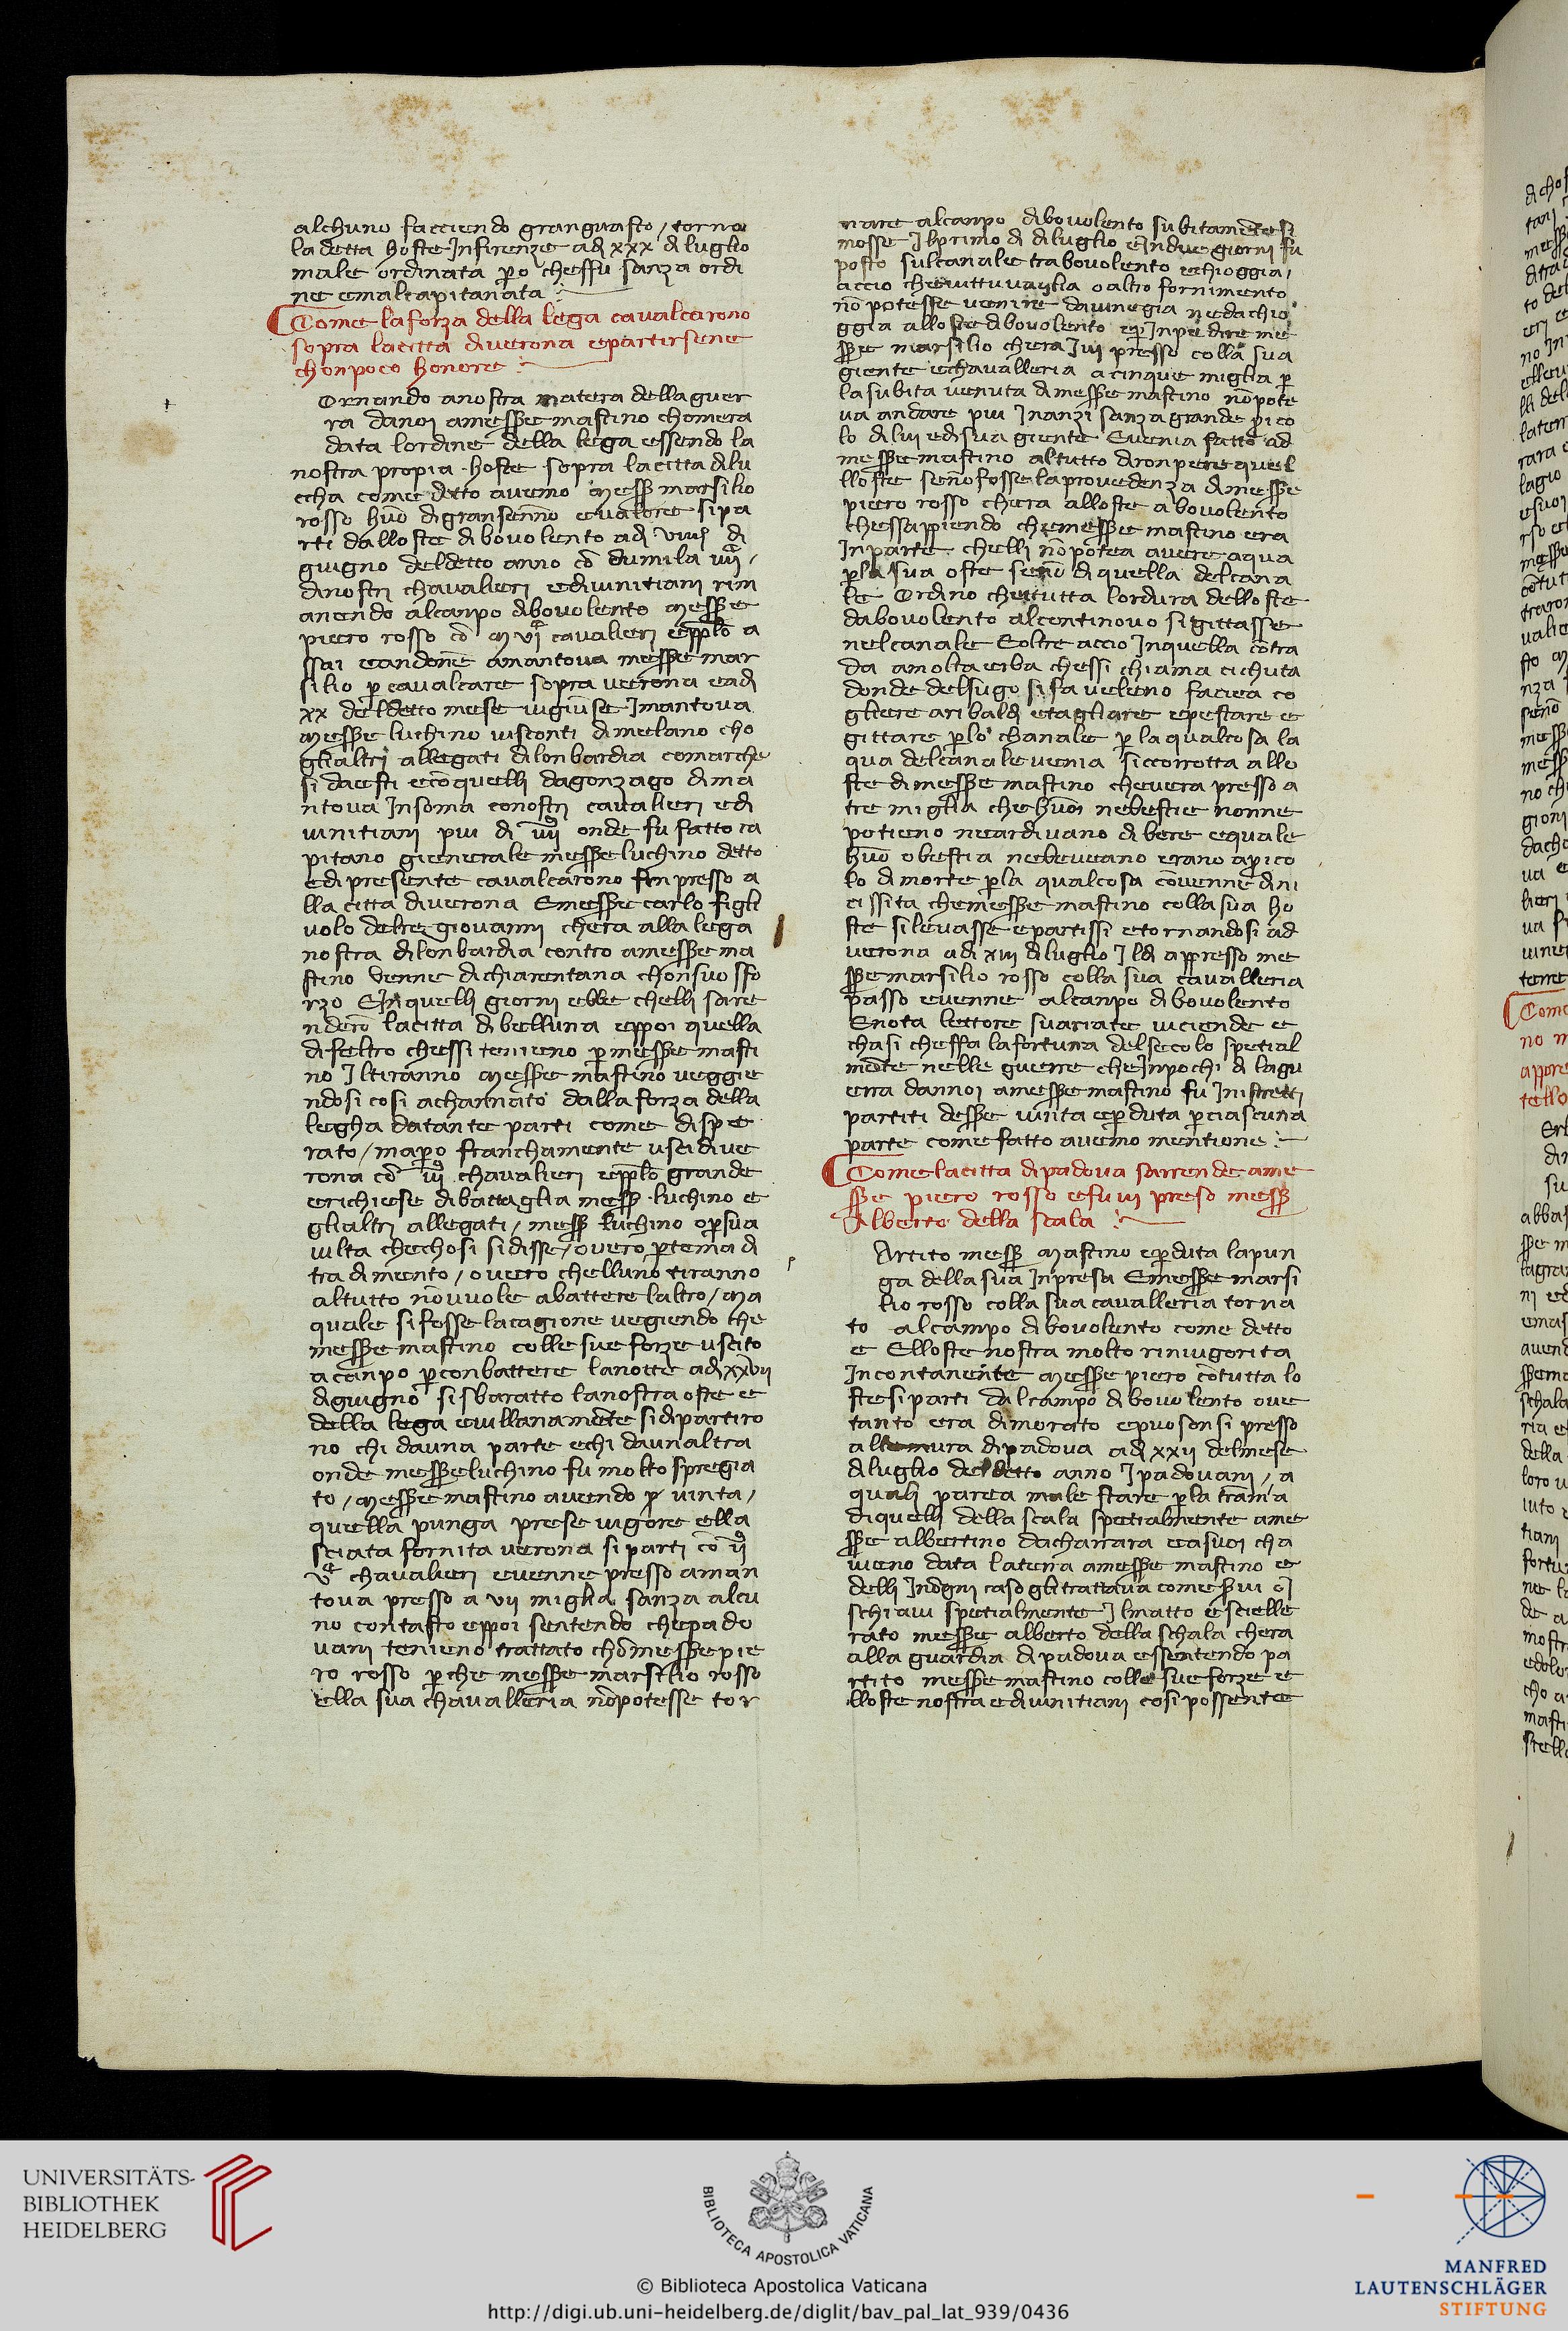 alchuno facciendo granguasto / torno
la detta hoste Infirenze adj xxx dj luglio
male ordinata p̱o cheffu sanza ordi
ne emalcapitanata
Come la forza della lega cavalcarono
sopra lacitta diverona epartirsene
chonpoco honore
Ornando anostra matera dellaguer
ra danoi amess̱e mastino chomera
data lordine della lega essendo la
nostra propia hoste sopra lacitta dilu
ccha come detto avemo mess̱ marsilio
rosso huō digransenno evalore sipa
rti dalloste dibovolento adj dj
giugno deldetto anno cō dumila
dinostri chavalieri edivinitiani rim
anendo alcanpo dibovolento mess̱e
piero rosso cō cavalieri epp̱lō a
ssai eandonē amantova mess̱e mar
silio p̱ cavalcare sopra verona eadj
xx deldetto mese vigiūse Imantova
mess̱e luchino visconti dimelano cho
glialtri allegati dilonbardia comarche
si daesti ecōquelli dagonzago dima
ntova Insoma conostri cavalieri edi
vinitiani piu di onde fu fatto ca
pitano gienerale mess̱e luchino detto
edipresente cavalcarono fin presso a
lla citta diverona Emess̱e carlo figli
uolo delre giovanni chera alla lega
nostra dilonbardia contro amess̱e ma
stino venne dichiarentana chonsuo sfo
rzo EInquelli giorni ebbe chelli sare
nderō lacitta dibelluna eppoi quella
difeltro chessi tenieno p̱ mess̱e masti
no Iltiranno mess̱e mastino veggie
ndosi cosi acharnato dalla forza della
legha datante parti come dispe
rato / map̱o franchamente uscidive
rona cō chavalieri epp̱lō grande
erichiese dibattaglia mess̱ luchino e
glialtri allegati / mess̱ luchino op̱sua
vilta chechosi sidisse / overo p̱tema di
tradimento / overo chelluno tiranno
altutto nōvuole abattere laltro / ma
quale sifosse lacagione vegiendo che
mess̱e mastino collesueforze uscito
acanpo p̱conbattere lanotte adj xxvij
digiugno sisbaratto lanostra oste e
della lega evillanamēte sidipartiro
no chi dauna parte echi daunaltra
onde mess̱eluchino fu molto spregia
to / mess̱e mastino avendo p̱ vinta /
quella punga prese vigore ella
sciata fornita verona siparti cō
chavalieri evenne presso aman
tova presso a vij miglia sanza alcu
no contasto eppoi sentendo chepado
vani tenieno trattato chōmess̱e pie
ro rosso p̱che mess̱e marsilio rosso
ella sua chavalleria nōpotesse tor
nare alcanpo dibovolento subitamēte si
mosse Ilprimo dj diluglio eIndue giorni fu
posto sulcanale trabovolento echioggia /
accio chevittuvaglia o altro fornimento
nō potesse venire davinegia nedachio
ggia alloste dibovolento ep̱ Inpedire me
ss̱e marsilio chera Ivi presso colla sua
giente echavalleria acinque miglia p̱
lasubita venuta dimess̱e mastino nōpote
va andare piu Inanzi sanza grande pico
lo dilui edisua giente Evenia fatto ad
mess̱e mastino altutto dironpere quel
lloste senōfosse laprovedenza dimess̱e
piero rosso chera alloste abovolento
chessappiendo chemess̱e mastino era
Inparte chelli nōpotea avere aqua
p̱la sua oste senō diquella delcana
le Ordino chetutta lordura delloste
dabovolento alcontinovo sigittasse
nelcanale Eoltre accio Inquella cōtra
da amolta erba chessi chiama cichuta
donde delsugo sifa veleno faciea co
gliere aribaldi etagliare epestare e
gittare p̱lo chanale p̱ la qualcosa la
qua delcanale venia siccorrotta allo
ste dimess̱e mastino chevera presso a
tre miglia chehuōi nebestie nonne
potieno neardivano dibere equale
huō obestia nebeveano erano apico
lo dimorte p̱la qualcosa cōvenne dini
cissita chemess̱e mastino colla sua ho
ste silevasse epartissi etornandosi ad
verona adj xiij diluglio Ildi appresso me
ss̱e marsilio rosso colla sua cavalleria
passo evenne alcanpo dibovolento
Enota lettore svariate viciende e
chasi cheffa lafortuna delsecolo spetial
mēte nelle guerre cheInpochi dj lagu
erra dannoi amess̱e mastino fu Inistretti
partiti dess̱e vinta ep̱duta p̱ciascuna
parte come fatto avemo mentione
Come lacitta dipadova sarrende ame
ss̱e piero rosso efuvi preso mess̱
Alberto della scala
Artito mess̱ mastino ep̱duta lapun
ga della sua Inpresa Emess̱e marsi
lio rosso colla sua cavalleria torna
to alcampo dibovolento come detto
e Elloste nostra molto rinvigorita
Incontanente mess̱e piero cōtutta lo
ste siparti dalcampo dibovolento ove
tanto era dimorato epuosonsi presso
alle mura dipadova adj xxij delmese
diluglio deldetto anno Ipadovani / a
quali parea male stare p̱la tirānia
diquelli della scala spetialmente ame
ss̱e albertino dacharrara easuoi cha
vieno data laterra amess̱e mastino e
delli Inōgni caso gli trattava come s̱vi oI
schiavi spetialmente Ilmatto escielle
rato mess̱e alberto della schala chera
alla guardia dipadova essentendo pa
rtito mess̱e mastino colle sue forze e
lloste nostra edivinitiani cosi possente
UNIVERSITÄTS-
BIBLIOTHEK
HEIDELBERG
BIBLIOTECA APOSTOLICA VATICANA
© Biblioteca Apostolica Vaticana
http://digi.ub.uni-heidelberg.de/diglit/bav_pal_lat_939/0436
MANFRED
LAUTENSCHLÄGER
STIFTUNG